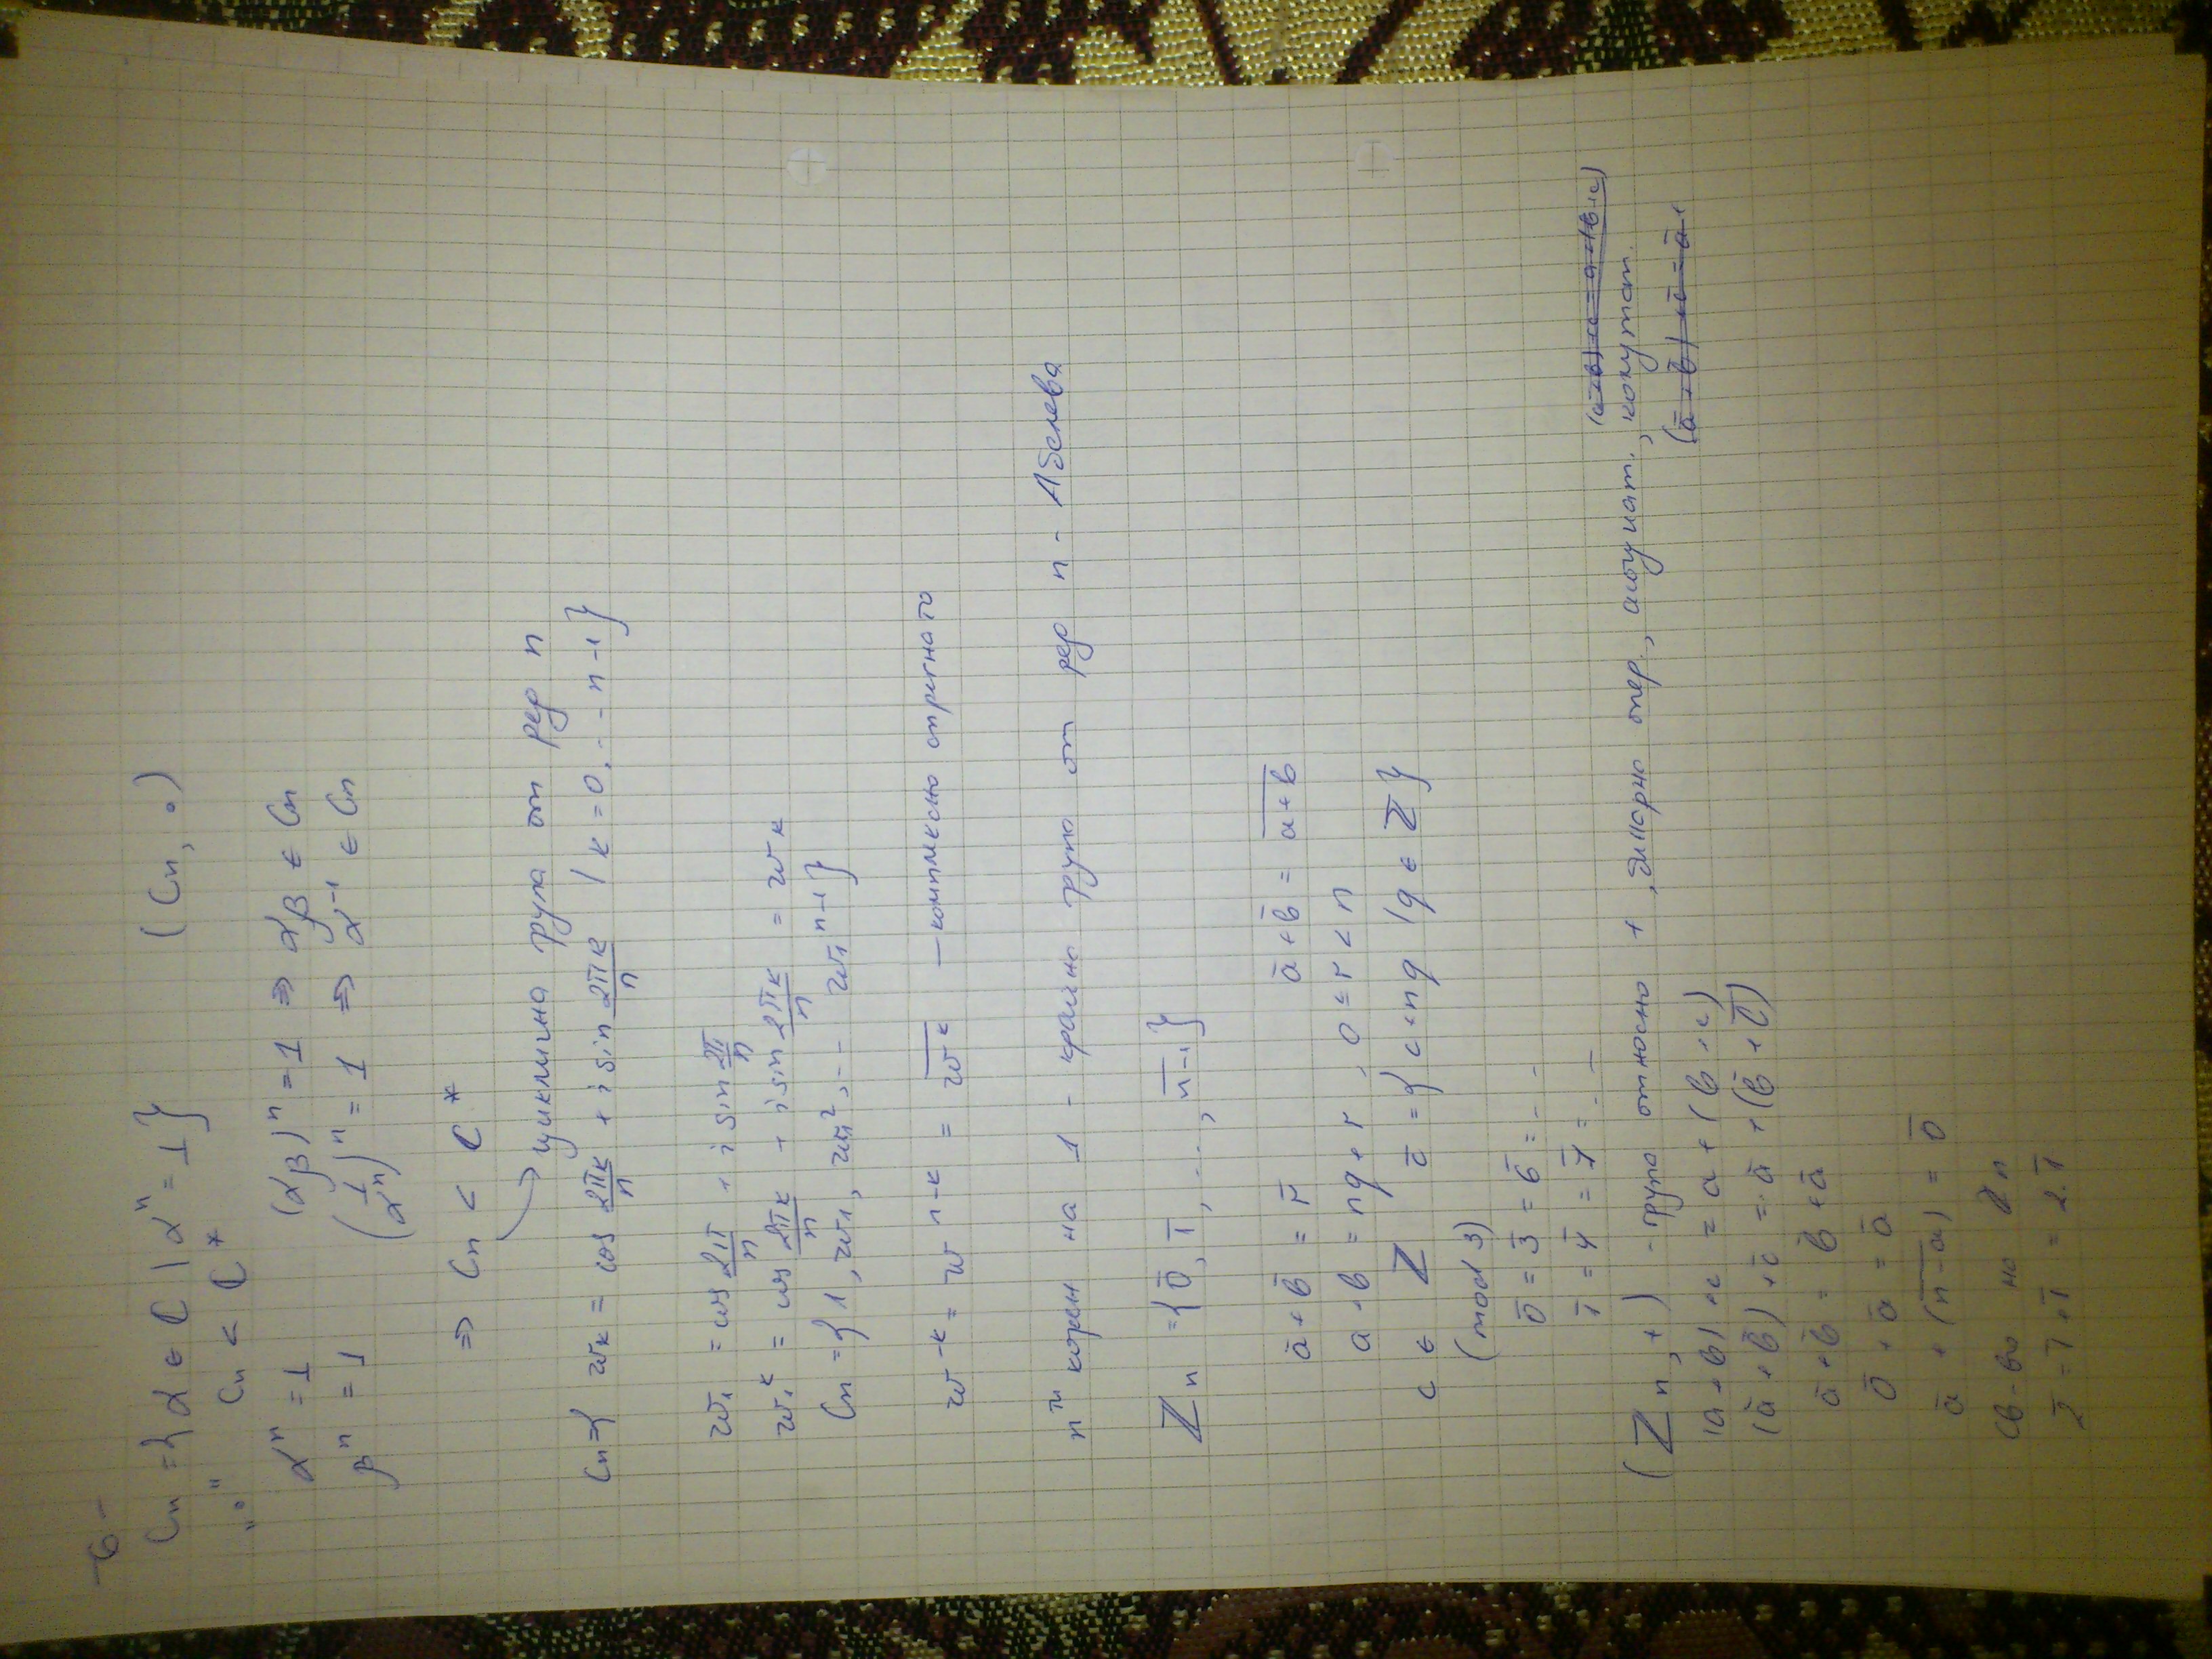 -6-
Cn = {α ∈ ℂ | αⁿ = 1} (Cn, ∘)
„∘" Cn < ℂ*
αⁿ = 1 (αβ)ⁿ = 1 ⇒ αβ ∈ Cn
βⁿ = 1 (1/αⁿ)ⁿ = 1 ⇒ α⁻¹ ∈ Cn
⇒ Cn < ℂ*
циклична група от ред n
Cn = { wk = cos 2πk/n + i sin 2πk/n | k = 0, - - n-1}
w₁ = cos 2π/n + i sin 2π/n
w₁ᵏ = cos 2πk/n + i sin 2πk/n = wk
Cn = {1, w₁, w₁², - - w₁ⁿ⁻¹}
w-k = w n-k = \overline{w k} — комплексно спрегнато
nти корен на 1 - крайна група от ред n - Абелева
ℤn = {0̅, 1̅, ..., \overline{n-1}}
a̅ + b̅ = r̅ a̅ + b̅ = \overline{a+b}
a+b = nq + r, 0 ≤ r < n
c ∈ ℤ c̅ = {c+nq | q ∈ ℤ}
(mod 3)
0̅ = 3̅ = 6̅ = - -
1̅ = 4̅ = 7̅ = - -
(ℤn, +) - група относно +, бинарна опер., асоциат., комутат.
(a+b)+c = a+(b+c)
(a̅ + b̅) + c̅ = a̅ + (b̅ + c̅)
a̅ + b̅ = b̅ + a̅
0̅ + a̅ = a̅
a̅ + (\overline{n-a}) = 0̅
св-во на ℤn
2̅ = 1̅ + 1̅ = 2.1̅